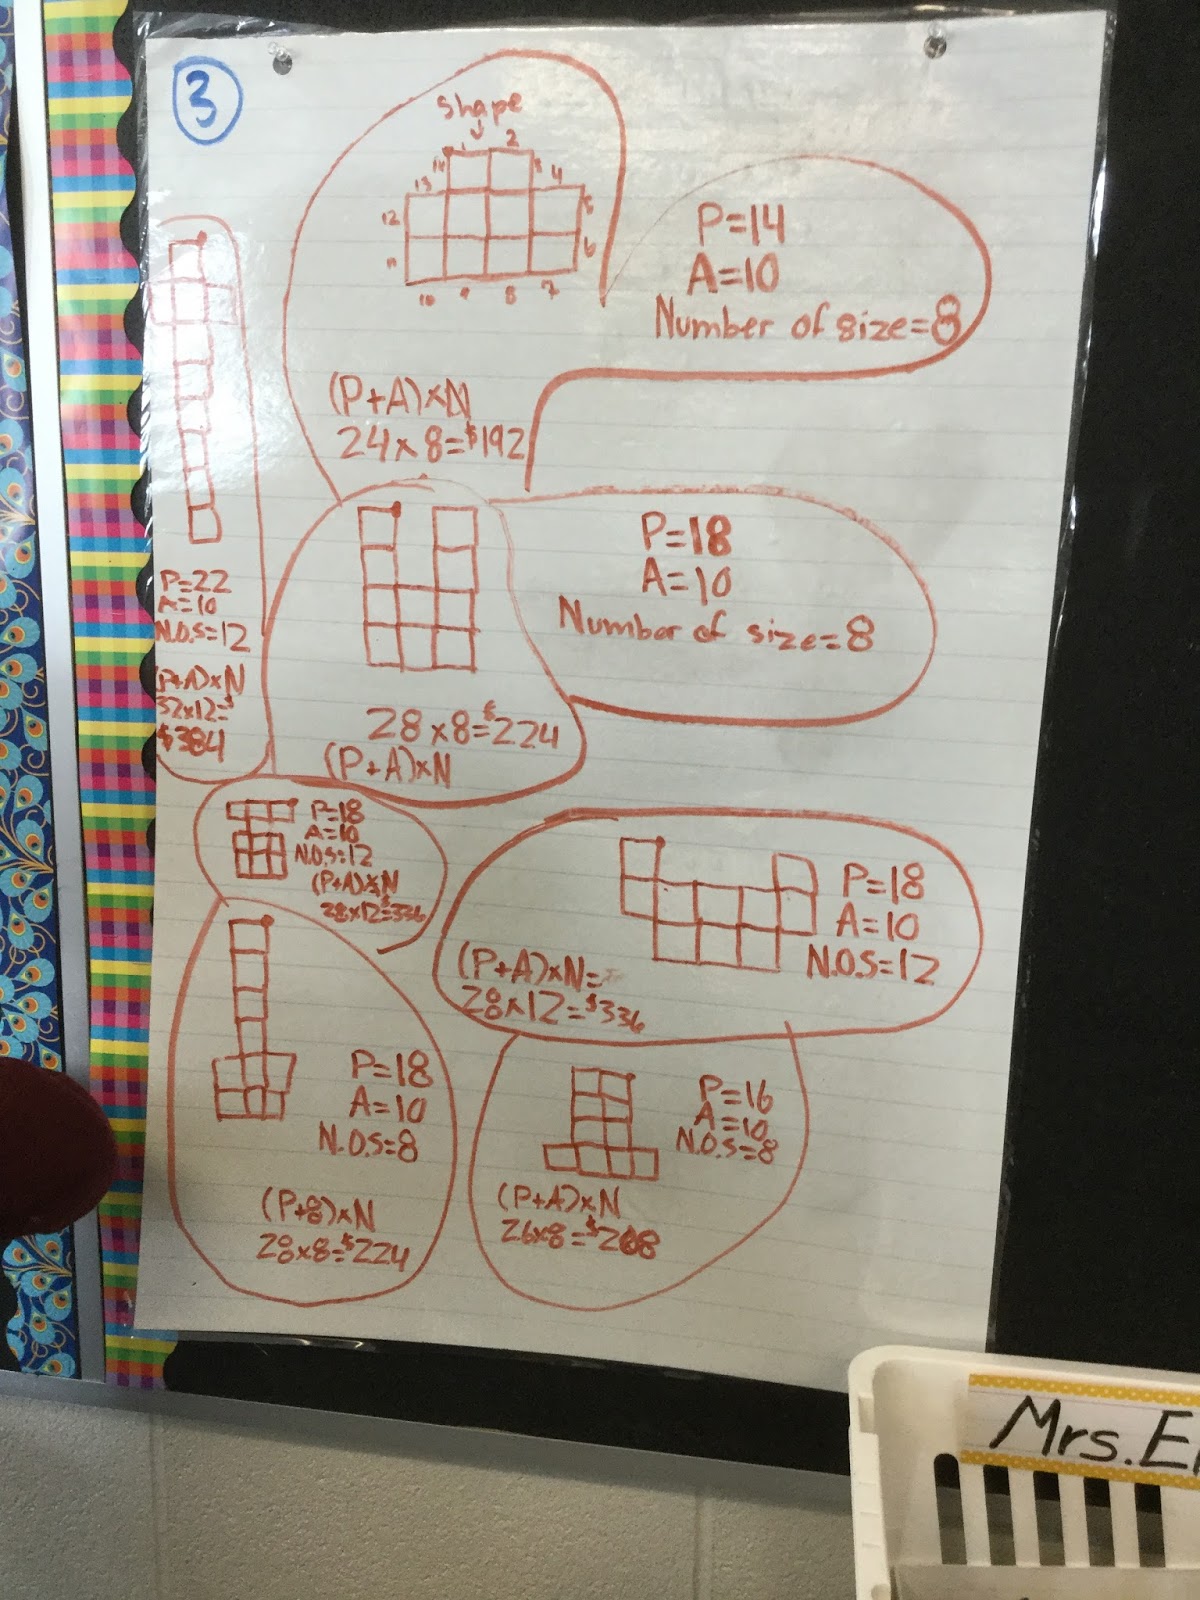 3
shape
1 2
14 3 4
13
12 5
11 6
10 9 8 7
P=14
A=10
Number of size=8
(P+A)×N
24×8=$192
P=22
A=10
N.O.S=12
(P+A)×N
32×12=$
$384
P=18
A=10
Number of size=8
28×8=$224
(P+A)×N
P=18
A=10
N.O.S=12
(P+A)×N
28×12=$336
P=18
A=10
N.O.S=12
(P+A)×N=
28×12=$336
P=18
A=10
N.O.S=8
(P+8)×N
28×8=$224
P=16
A=10
N.O.S=8
(P+A)×N
26×8=$208
Mrs.E